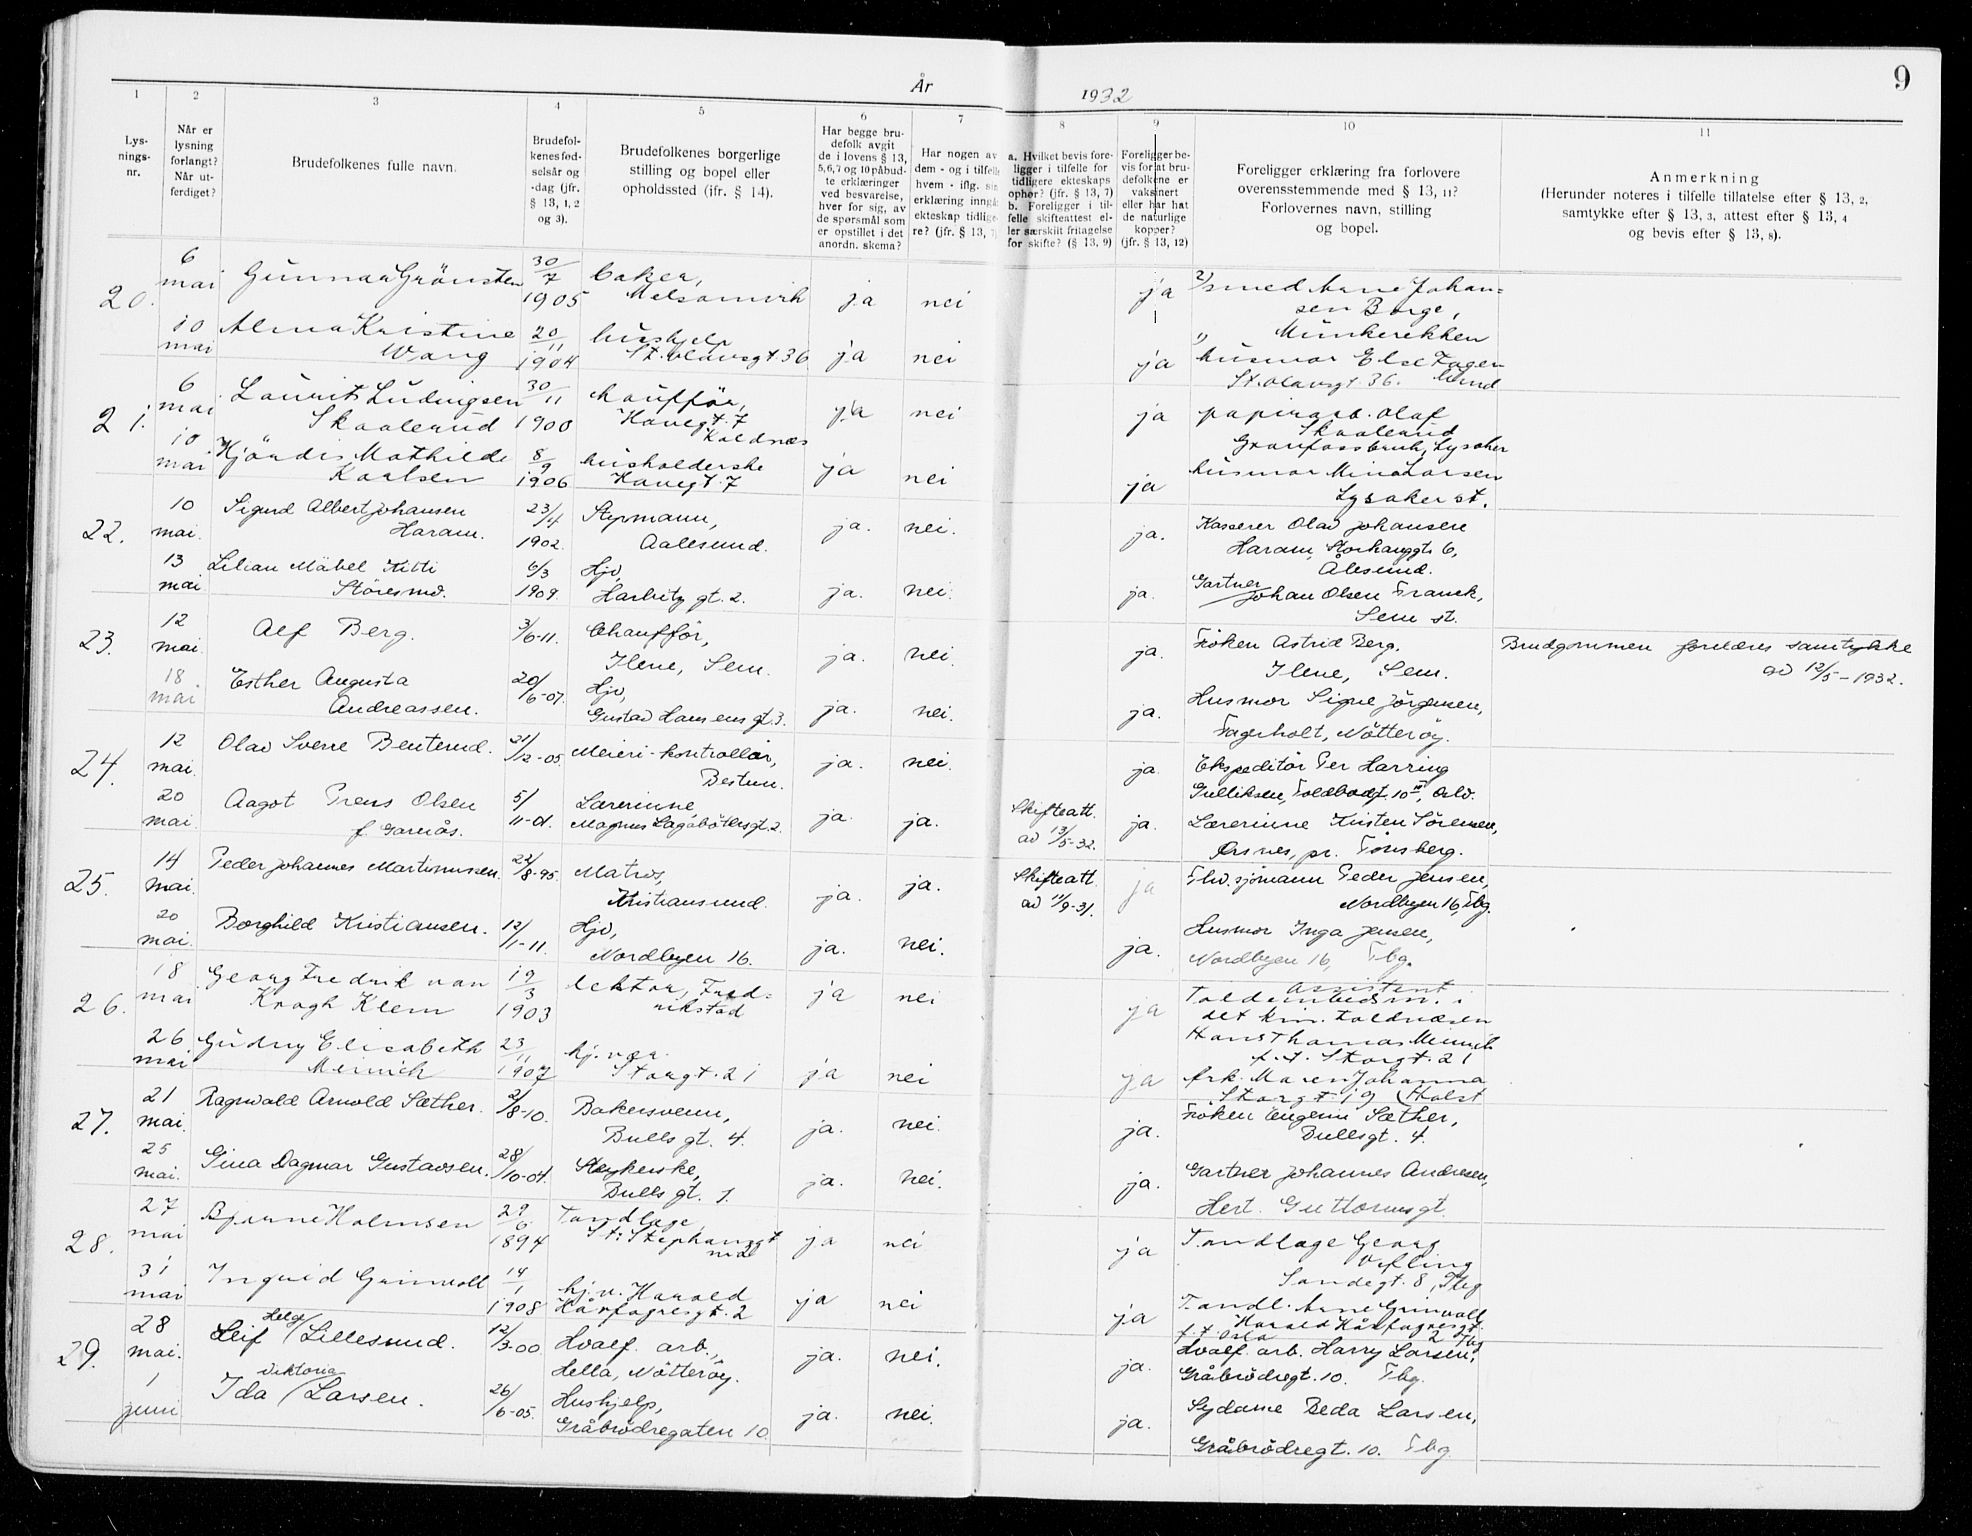 År 1932
9
1
2
3
4
5
6
7
8
9
10
11
Lys-
nings-
nr.
Når er
lysning
forlangt?
Når ut-
ferdiget?
Brudefolkenes fulle navn.
Brudefol-
kenes fød-
selsår og
-dag (jfr.
§ 13, 1, 2
og 3).
Brudefolkenes borgerlige
stilling og bopel eller
opholdssted (jfr. § 14).
Har begge bru-
defolk avgit
de i lovens § 13,
5,6,7 og 10 påbud-
te erklæringer
ved besvarelse,
hver for sig, av
de spørsmål som
er opstillet i det
anordn. skema?
Har nogen av
dem - og i tilfelle
hvem - iflg. sin
erklæring inngå
ekteskap tidlige-
re? (jfr. § 13, 7)
a. Hvilket bevis fore-
ligger i tilfelle for
tidligere ekteskaps
ophør? (jfr. § 13, 7)
b. Foreligger i til-
felle skifteattest el-
ler særskilt fritagelse
for skifte? (§ 13, 9)
Foreligger be-
vis for at bru-
defolkene er
vaksinert
eller har hat
de naturlige
kopper?
(jfr. § 13, 12)
Foreligger erklæring fra forlovere
overensstemmende med § 13, 11?
Forlovernes navn, stilling
og bopel.
Anmerkning
(Herunder noteres i tilfelle tillatelse efter § 13, 2,
samtykke efter § 13, 3, attest efter § 13, 4
og bevis efter § 13, 8).
20.
6
mai
Gunnar Grönsten
30/7
1905
baker,
Melsomvik
ja
nei
ja
smed Arne Johan-
sen Borge,
Munkerekken
10
mai
Alma Kristine
Wang
20/11
1904
hushjelp
St. Olavsgt. 36
ja
nei
ja
husmor Else Fagen
St. Olavsgt. 36.
21.
6
mai
Laurits Ludvigsen
Skaalerud
30/11
1900
chaufför,
Havegt. 7
Kaldnæs
ja
nei
ja
papirarb. Olaf
Skaalerud
Granfossbruk, Lysaker
10
mai
Hjördis Mathilde
Karlsen
8/9
1906
husholderske
Havegt. 7
ja
nei
ja
husmor Mina Larsen
Lysaker st.
22.
10
mai.
Sigurd Albert Johansen
Haram.
23/4
1902.
Styrmann,
Aalesund.
ja.
nei.
ja.
Kasserer Olav Johansen
Haram, Storhauggt. 6,
Ålesund.
13
mai
Lilian Mäbel Kitti
Störesund.
6/3
1909.
Hjv,
Harbitz gt. 2.
ja.
nei.
ja.
Gartner
Johan Olsen Franck,
Sem st.
23.
12
mai.
Alf Berg.
3/6-11.
Chaufför,
Ilene, Sem.
ja.
nei.
ja.
Fröken Astrid Berg,
Ilene, Sem.
Brudgommen foreldres samtykke
av 12/5-1932.
18
mai
Esther Augusta
Andreassen.
20/6-07.
Hjv,
Gustav Hansens gt. 3.
ja.
nei.
ja.
Husmor Signe Jörgensen,
Fagerholt, Nötteröy.
24.
12
mai.
Olav Sverre Benterud.
21/12-05
Meieri-kontrollör,
Bestum.
ja.
nei.
ja.
Ekspeditör Per Harring
Gulliksen, Toldbodgt. 10, Oslo.
20
mai.
Aagot Prens Olsen
f. Garnås.
5/11-01.
Lærerinne,
Magnus Lagabötersgt. 2.
ja.
ja.
Skifteatt.
av 13/5-32.
ja.
Lærerinne Kristen Sörensen,
Örsnes, pr. Tönsberg.
25.
14
mai.
Peder Johannes Martinussen.
22/8-95.
Matros,
Kristiansund.
ja.
ja.
Skifteatt.
av 11/9-31.
ja
Fhv. sjömann Peder Jensen,
Nordbyen 16, Tbg.
20
mai.
Borghild Kristiansen.
12/1-11.
Hjv,
Nordbyen 16.
ja.
nei.
ja.
Husmor Inga Jensen,
Nordbyen 16, Tbg.
26.
18
mai
Georg Fredrik von
Krogh Klem
19/3
1903
lektor, Fred-
rikstad
ja
nei
ja
assistent
Toldembedsm. i
det kin. toldvæsen
Hans Thomas Meinich
f.t. Storgt. 21
26
mai
Gudny Elisabeth
Meinich
23/11
1907
hj. vær.
Storgt. 21
ja
nei
ja
frk. Maren Johanna
Storgt. 19 (Holst
27.
21
mai.
Ragnvald Arnold Sæther.
2/8-10.
Bakersvenn,
Bulls gt. 4.
ja.
nei.
ja.
Fröken Eugenie Sæther,
Bullsgt. 4.
25
mai.
Gina Dagmar Gustavsen.
28/10-04.
Strykerske,
Bulls gt. 1.
ja.
nei.
ja.
Gartner Johannes Andresen,
Hert. Guttormsgt.
28.
27
mai
Bjarne Holmsen
29/6
1894
Tandlæge,
St. Stephansgt
ja
nei
ja
Tandlæge Georg
Vefling
Sandegt. 8, Tbg
31
mai
Ingrid Grinvoll
14/1
1908
hj. v. Harald
Hårfagresgt. 2
ja
nei
ja
Tandl. Arne Grinvoll
Harald Hårfagresgt.
f.t. Oslo 2 Tbg
29.
28
mai.
Leif Helge Lillesund.
12/3-00
Hvalf. arb.,
Hella, Nötteröy.
ja.
nei.
ja.
Hvalf. arb. Harry Larsen,
Gråbrödregt. 10. Tbg.
1
juni
Ida Viktoria Larsen.
26/6-05.
Hushjelp,
Gråbrödregaten 10.
ja.
nei.
ja.
Sydame Beda Larsen,
Gråbrödregt. 10. Tbg.